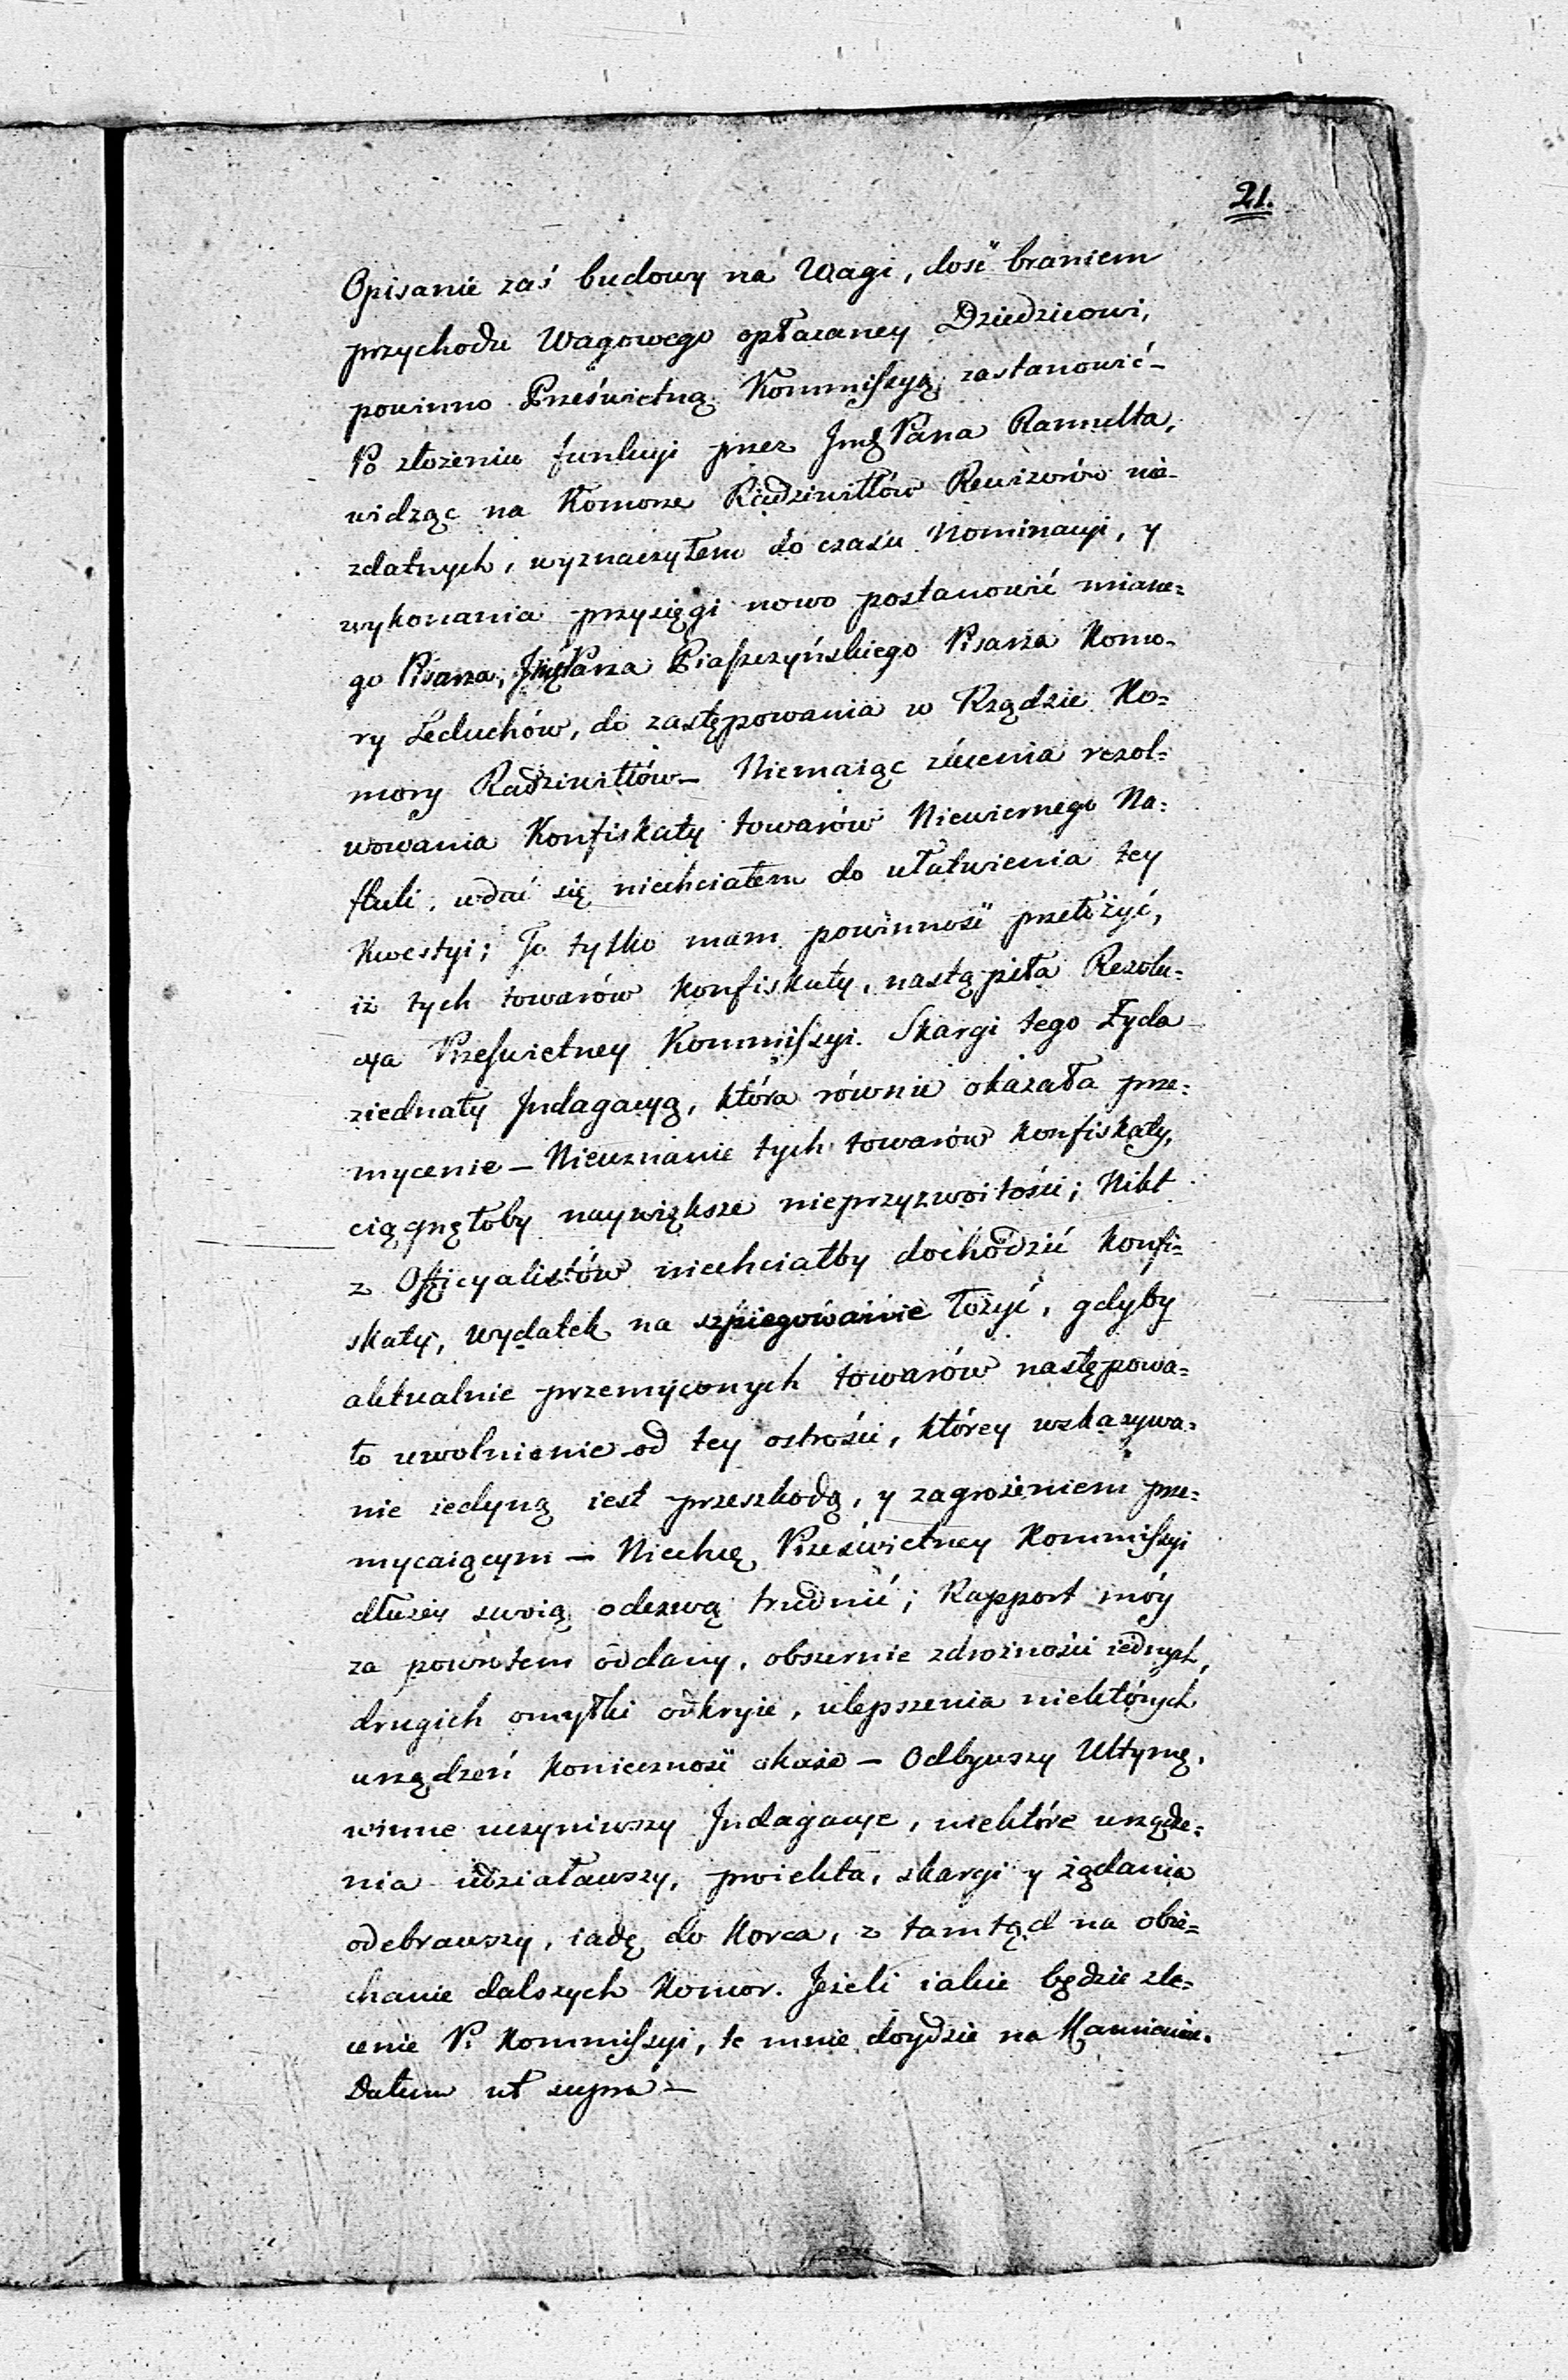 21.
Opisanie zaś budowy na Wagi, dość braniem
przychodu Wagowego opłacaney Dziedzicowi,
powinno Prześwietną Kommissyą zastanowić –
Po złożeniu funkcyi przez Jmć Pana Rammelta,
widząc na Komorze Radziwiłłów Rewizorów nie-
zdatnych, wyznaczyłem do czasu Nominacyi, y
wykonania przysięgi nowo postanowić miane-
go Pisarza, Jmć Pana Piaszczyńskiego Pisarza Komo-
ry Leduchów, do zastępowania w Rządzie Ko-
mory Radziwiłłów – Niemaiąc zlecenia rezol-
wowania Konfiskaty towarów Niewiernego Na-
ftuli, wdać się niechciałem do ułatwienia tey
Kwestyi; To tylko mam powinność przełożyć,
iż tych towarów konfiskaty, nastąpiła Rezolu-
cya Prześwietney Kommissyi. Skargi tego Żyda
ziednały Jndagacyą, która równie okazała prze-
mycenie – Nieuznanie tych towarów konfiskaty,
ciągnęłoby naywiększe nieprzyzwoitości; Nikt
z Officyalistów niechciałby dochodzić konfi-
skaty, wydatek na szpiegowanie łożyć, gdyby
aktualnie przemyconych towarów następowa-
ło uwolnienie od tey ostrości, którey wskazywa-
nie iedyną iest przeszkodą, y zagrożeniem prze-
mycaiącym – Niechcę Prześwietney Kommissyi
dłużey swoią odezwą trudnić; Rapport móy
za powrotem oddany, obszernie zdrożności iednych,
drugich omyłki odkryie, ulepszenia niektórych
urządzeń konieczność okaże – Odbywszy Ultymę,
winne uczyniwszy Jndagacye, niektóre urządze-
nia udziaławszy, proiekta, skargi y żądania
odebrawszy, iadę do Korca, z tamtąd na obie-
chanie dalszych Komor. Jeżeli iakie będzie zle-
cenie P. Kommissyi, te mnie doydzie na Kamieniec.
Datum ut supra –